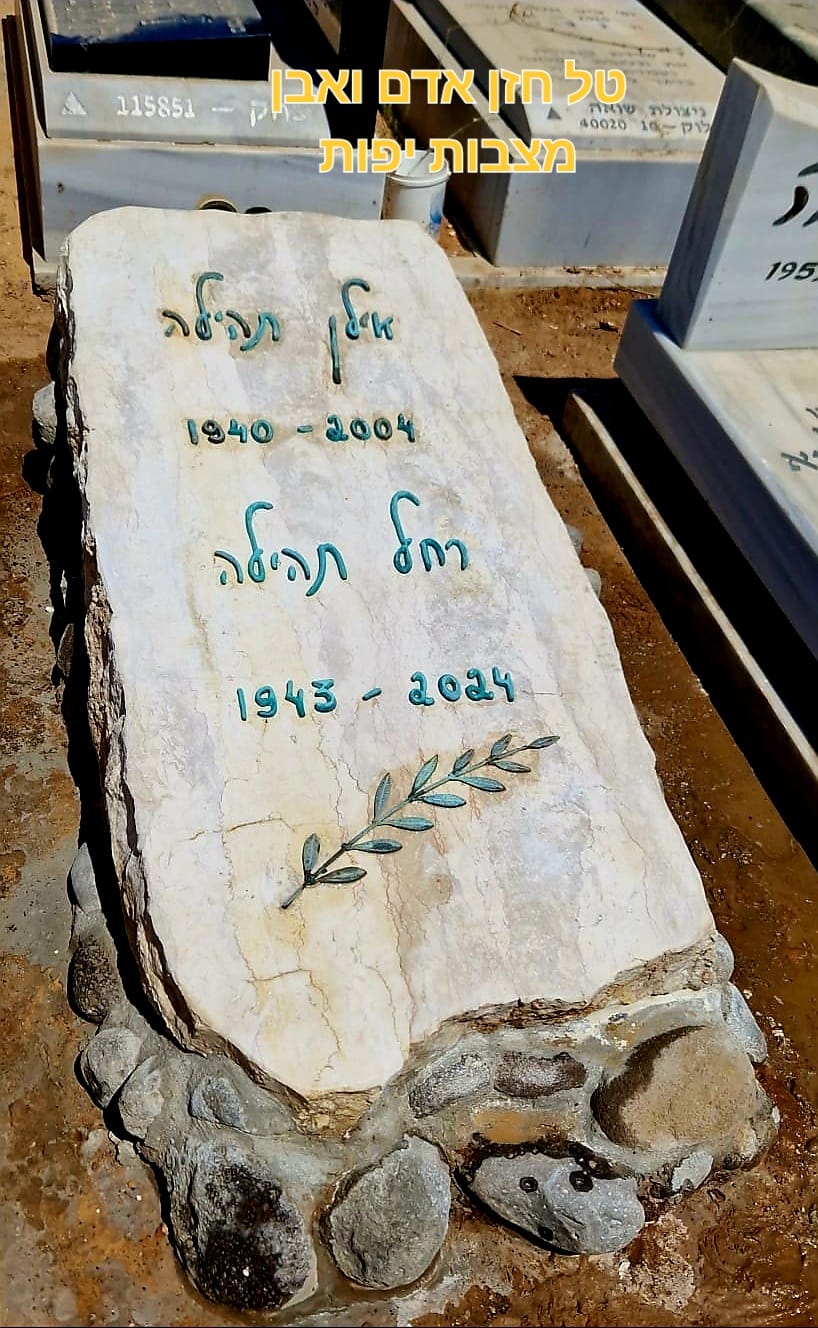 טל חזן אדם ואבן
מצבות יפות
115851 –
ניצולת שואה
40020
אילן תהילה
1940 - 2004
רחל תהילה
1943 - 2024
195